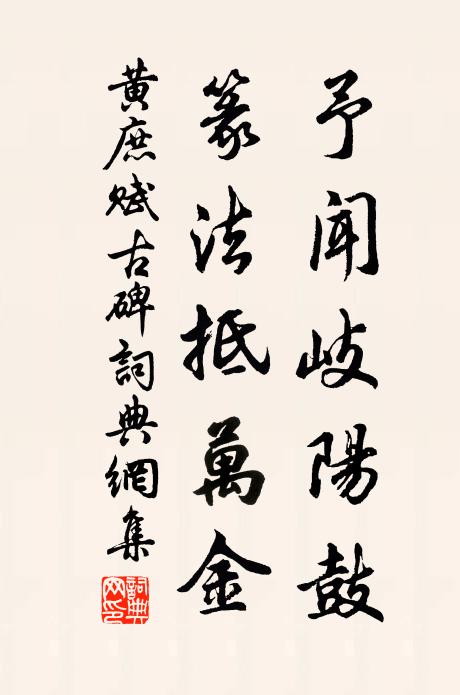 予聞岐陽鼓
篆法抵萬金
黃庶賦古碑詞典網集
詞典网印